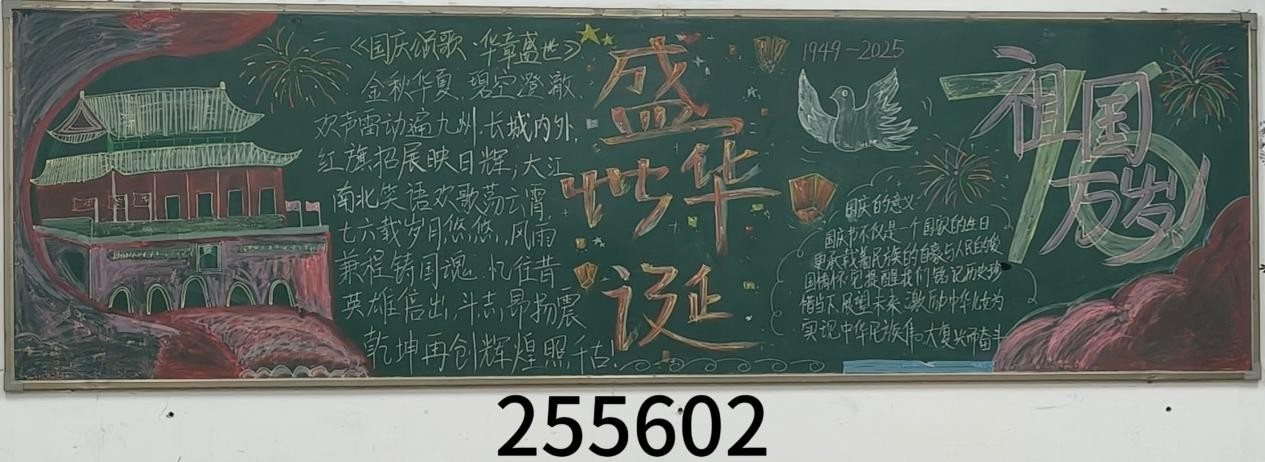 《国庆颂歌·华章盛世》
金秋华夏,碧空澄澈,
欢声雷动遍九州,长城内外,
红旗招展映日辉;大江
南北笑语欢歌荡云霄,
七六载岁月悠悠,风雨
兼程铸国魂,忆往昔
英雄倍出,斗志昂扬震
乾坤再创辉煌照千古!
盛世华诞
1949-2025
国庆的意义
国庆节不仅是一个国家的生日
更承载着民族的自豪与人民的爱
国情怀,它提醒我们铭记历史,珍
惜当下,展望未来,激励中华儿女为
实现中华民族伟大复兴而奋斗
76
祖国
万岁
255602